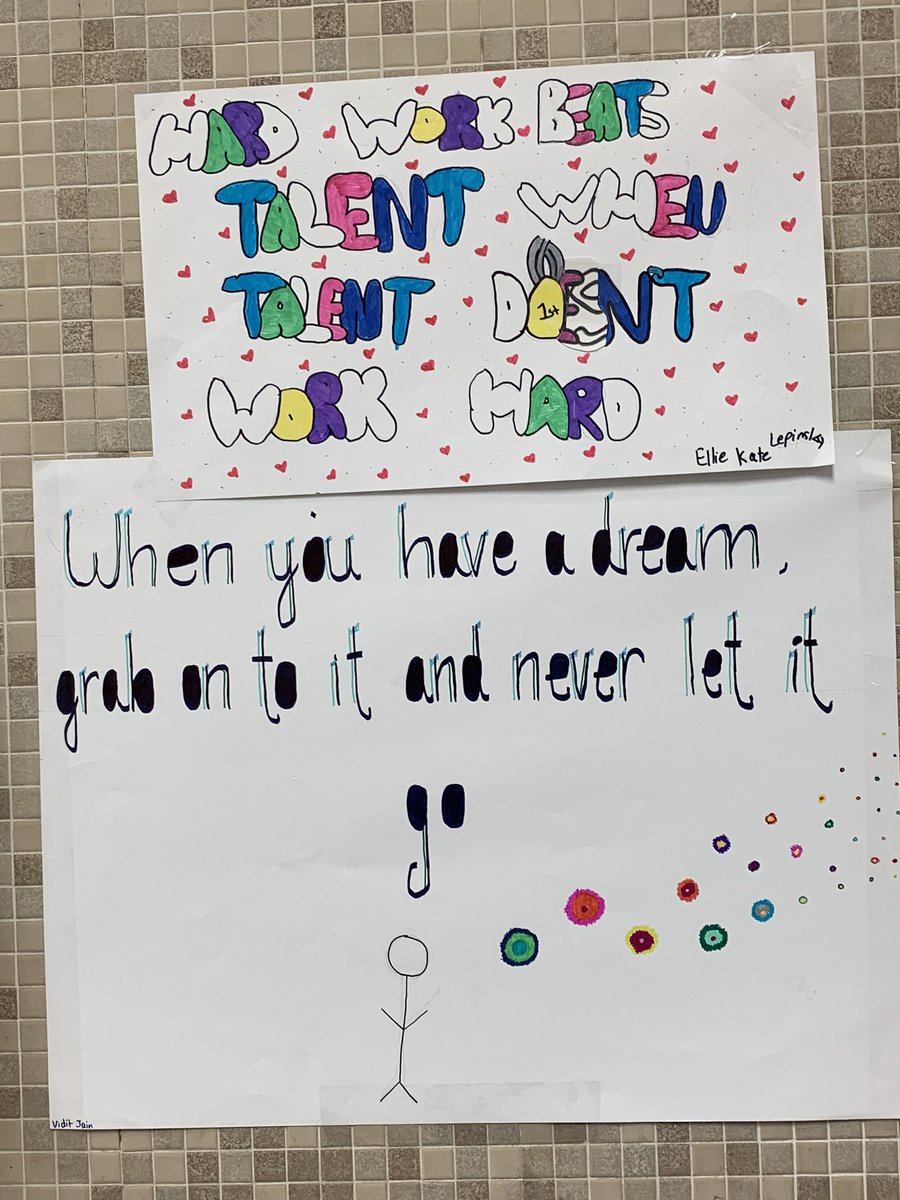 HARD WORK BEATS
TALENT WHEN
TALENT DOESN'T
1st
WORK HARD
Ellie Kate Lepinsky
When you have a dream,
grab on to it and never let it
go
Vidit Jain